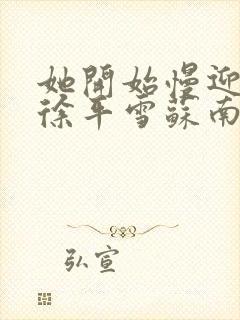 她開始慢迎
徐平雪蘇南
弘宣